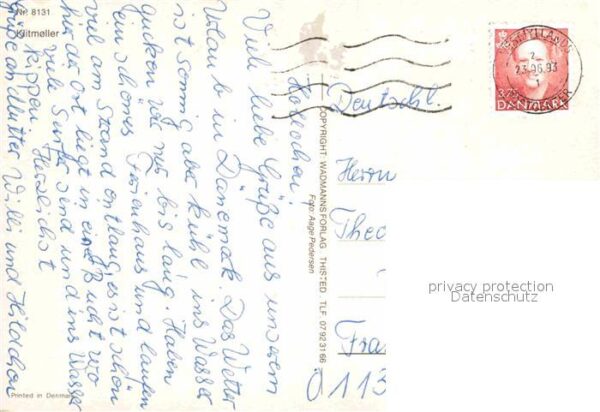 Nr. 8131
Klitmøller
Viele liebe Grüße aus unserem
Urlaub in Dänemark. Das Wetter
ist sonnig aber kühl ins Wasser
gucken wir nur bis lang. Haben
ein schönes Ferienhaus und laufen
viel am Strand entlang, es ist schön
hier der Ort liegt in einer Bucht wo
viele Surfer sind und ins Wasser
kippen. Herzlichst
Grüße an Mutter Willi und Hildchen
Printed in Denmark
COPYRIGHT WADMANNSFORLAG THISTED . TLF 07923166
Foto: Aage Pedersen
Deutschl.
Herrn
Theo
Fra
0113
23.06.93
3.75
DANMARK
privacy protection
Datenschutz